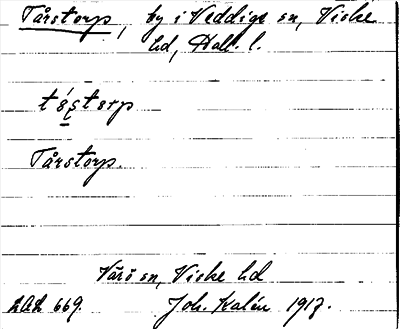 Tårstorp, by i Veddige sn, Viske
hd, Hall. l.
Tårstorp.
Värö sn, Viske hd
669. Joh. Kalén 1917.